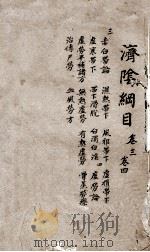 濟陰綱目 卷三 卷四
三 赤白帶論 濕熱帶下 風邪帶下 虛損帶下
虛寒帶下 帶下滑脫 白濁白淫 四 虛勞論
虛勞兼補諸方 無熱虛勞 有熱虛勞
治傳尸勞 血風勞方